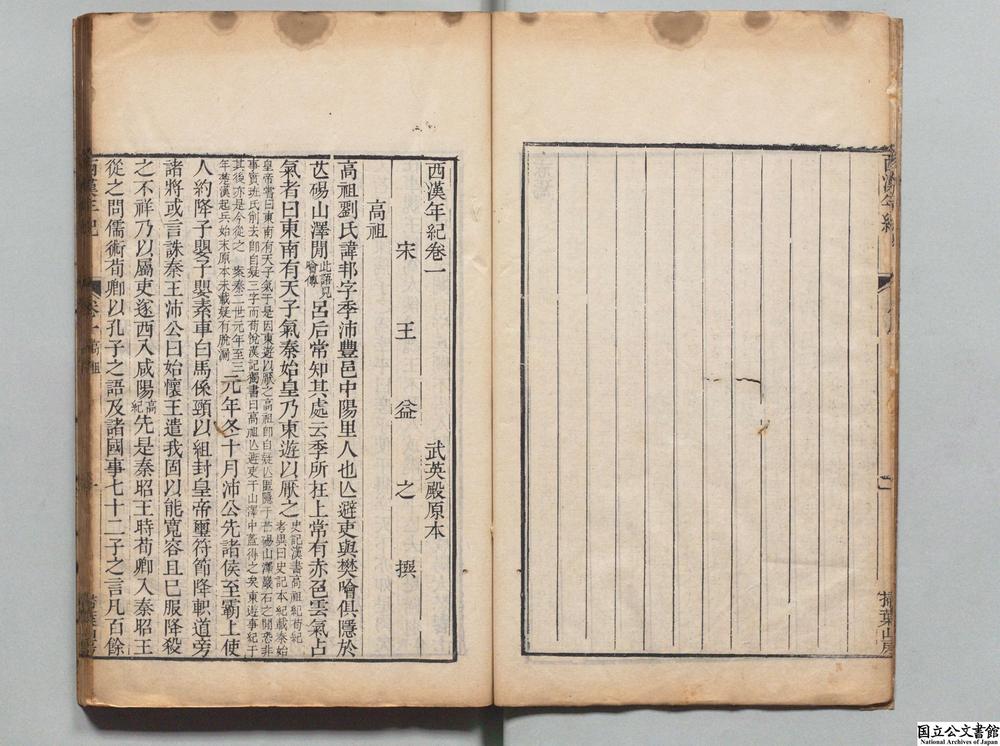 西漢年紀
掃葉山房
西漢年紀卷一 武英殿原本
宋 王 益 之 撰
高祖
高祖劉氏諱邦字季沛豐邑中陽里人也亾避吏與樊噲俱隱於
芒碭山澤閒此語見噲傳呂后常知其處云季所在上常有赤色雲氣占
氣者曰東南有天子氣秦始皇乃東遊以厭之史記漢書高祖紀荀紀考異曰史記本紀載秦始
皇帝嘗曰東南有天子氣于是因東遊以厭之高祖卽自疑亾匿隱于芒碭山澤巖石之閒悉非
事實班氏削去卽自疑三字而荀悅漢記獨書曰高祖亾避吏于山澤中蓋得之矣東遊事紀于
其後亦是今從之 案秦二世元年至三年漢起兵始末原本未載疑有脫漏元年冬十月沛公先諸侯至霸上使
人約降子嬰子嬰素車白馬係頸以組封皇帝璽符節降軹道旁
諸將或言誅秦王沛公曰始懷王遣我固以能寬容且已服降殺
之不祥乃以屬吏遂西入咸陽高紀先是秦昭王時荀卿入秦昭王
從之問儒術荀卿以孔子之語及諸國事七十二子之言凡百餘
西漢年紀 卷一 高祖 一 掃葉山房
国立公文書館
National Archives of Japan